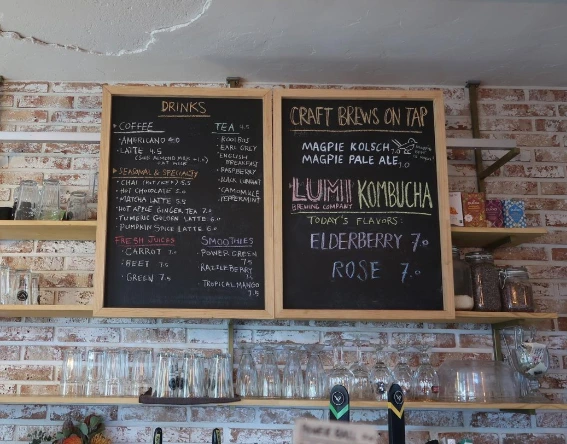 DRINKS
COFFEE
AMERICANO 4.0
LATTE 4.5
SEASONAL & SPECIALTY
CHAI (HOT/ICED) 5.5
HOT CHOCOLATE 5.0
MATCHA LATTE 5.5
HOT APPLE GINGER TEA 7.0
TUMERIC GOLDEN LATTE 6.0
PUMPKIN SPICE LATTE 6.0
FRESH JUICES
CARROT 7.0
BEET 7.5
GREEN 7.5
TEA 4.5
ROOIBOS
EARL GREY
ENGLISH
BREAKFAST
RASPBERRY
BLACK CURRANT
CAMOMILE
PEPPERMINT
SMOOTHIES
POWER GREEN
7.5
RAZZLEBERRY
TROPICAL MANGO
7.5
CRAFT BREWS ON TAP
MAGPIE KOLSCH 7.0
MAGPIE PALE ALE 7.0
LUMI KOMBUCHA
BREWING COMPANY
TODAY'S FLAVORS:
ELDERBERRY 7.0
ROSE 7.0